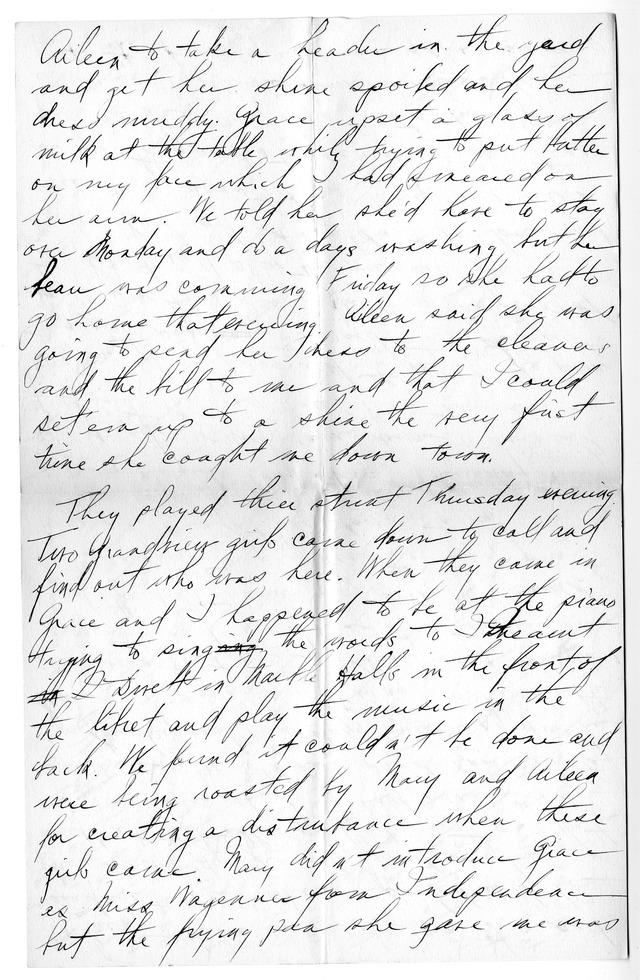 Aileen to take a header in the yard
and get her shine spoiled and her
dress muddy. Grace upset a glass of
milk at the table while trying to put butter
on my face which I had smeared on
her arm. We told her she'd have to stay
over Monday and do a days washing but her
beau was comming Friday so she had to
go home that evening. Aileen said she was
going to send her dress to the cleaners
and the bill to me and that I could
set em up to a shine the very first
time she caught me down town.
They played thier stunt Thursday evening.
Two Grandview girls came down to call and
find out who was here. When they came in
Grace and I happened to be at the piano
trying to singing the words to I Dreamt
in I Dwelt in Marble Halls in the front of
the libret and play the music in the
back. We found it couldn't be done and
were being roasted by Mary and Aileen
for creating a disturbance when these
girls came. Mary didn't introduce Grace
as Miss Waggener from Independence
but the frying pan she gave me was